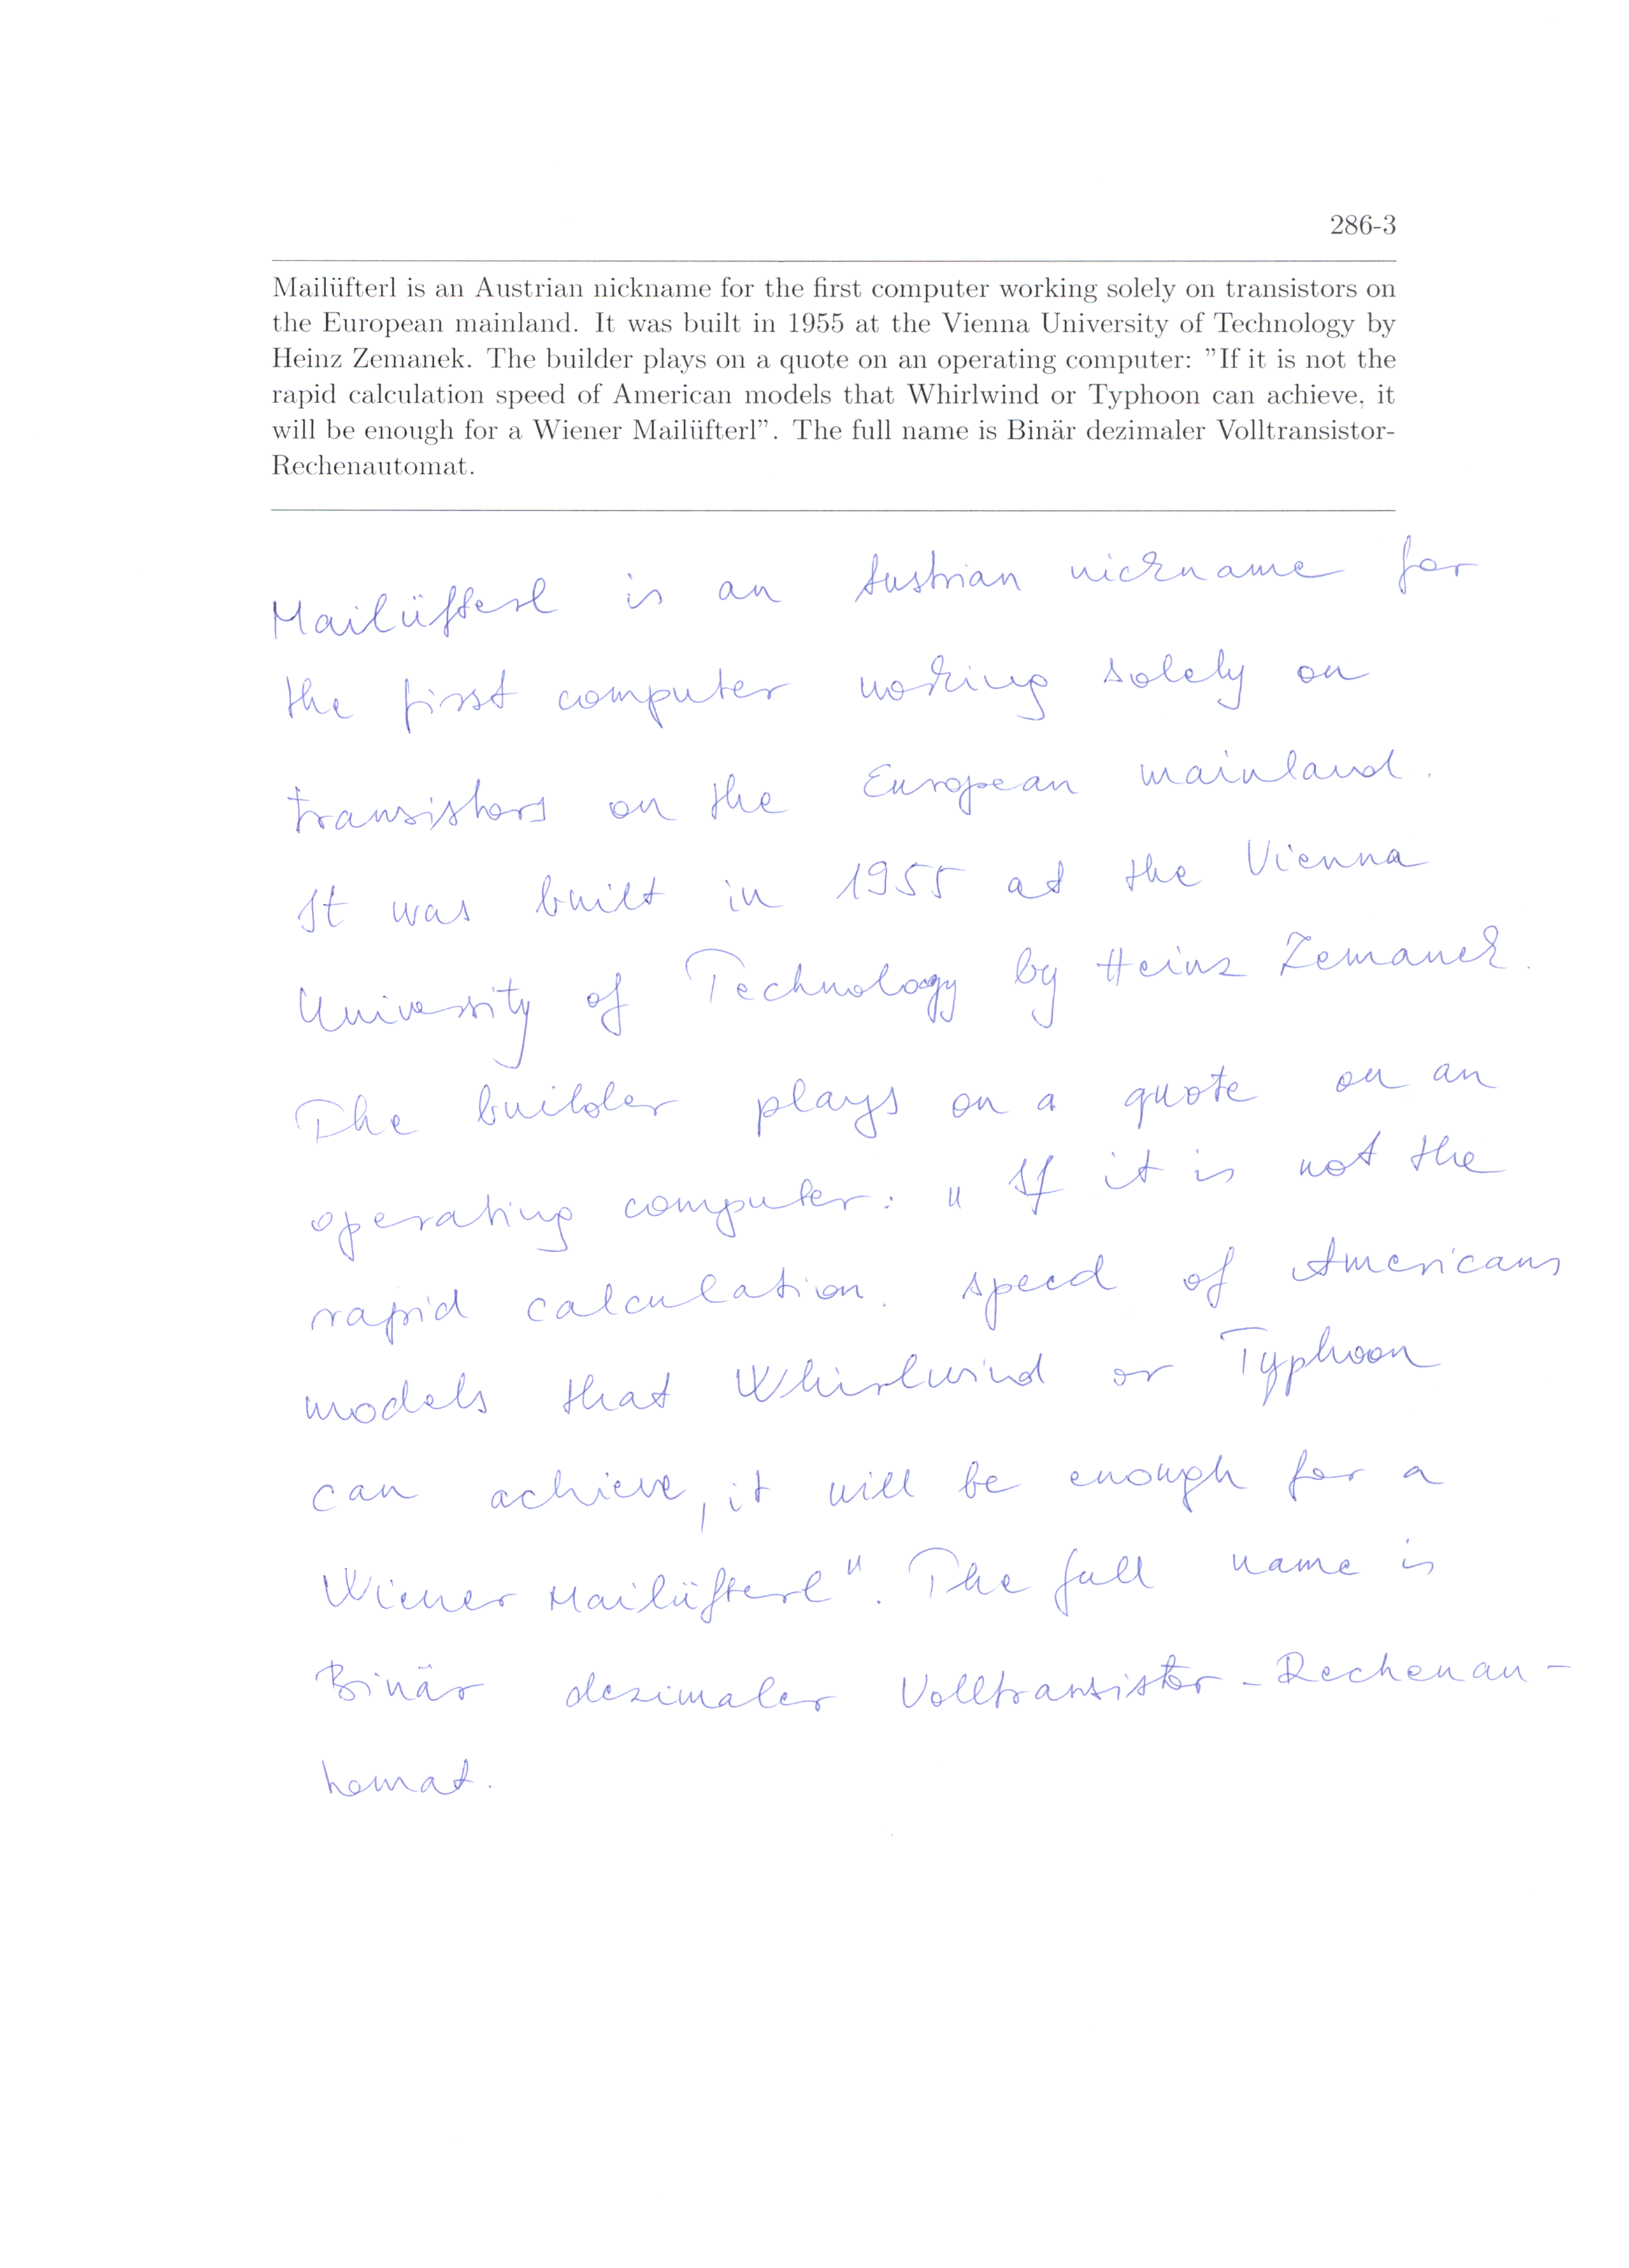 286-3
Mailüfterl is an Austrian nickname for the first computer working solely on transistors on
the European mainland. It was built in 1955 at the Vienna University of Technology by
Heinz Zemanek. The builder plays on a quote on an operating computer: ”If it is not the
rapid calculation speed of American models that Whirlwind or Typhoon can achieve, it
will be enough for a Wiener Mailüfterl”. The full name is Binär dezimaler Volltransistor-
Rechenautomat.
Mailüfterl is an Austrian nickname for
the first computer working solely on
transistors on the European mainland.
It was built in 1955 at the Vienna
University of Technology by Heinz Zemanek.
The builder plays on a quote on an
operating computer: "If it is not the
rapid calculation. speed of Americans
models that Whirlwind or Typhoon
can achieve, it will be enough for a
Wiener Mailüfterl". The full name is
Binär dezimaler Volltransistor-Rechenau-
tomat.